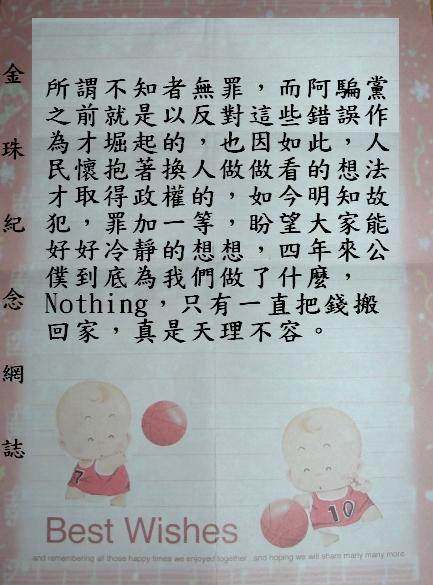 金珠紀念網誌
所謂不知者無罪，而阿騙黨
之前就是以反對這些錯誤作
為才堀起的，也因如此，人
民懷抱著換人做做看的想法
才取得政權的，如今明知故
犯，罪加一等，盼望大家能
好好冷靜的想想，四年來公
僕到底為我們做了什麼，
Nothing，只有一直把錢搬
回家，真是天理不容。
7
10
Best Wishes
and remembering all those happy times we enjoyed together...and hoping we will share many many more